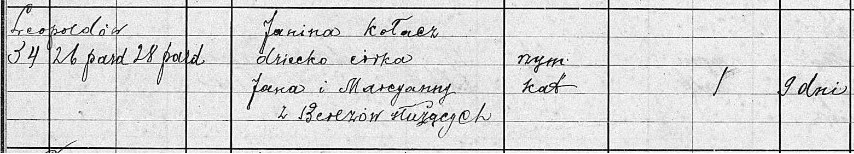 Leopoldów Janina Kołacz
34 26 paźd 28 paźd dziecko córka rzym.
Jana i Maryanny kat / 9 dni
z Berezów służących